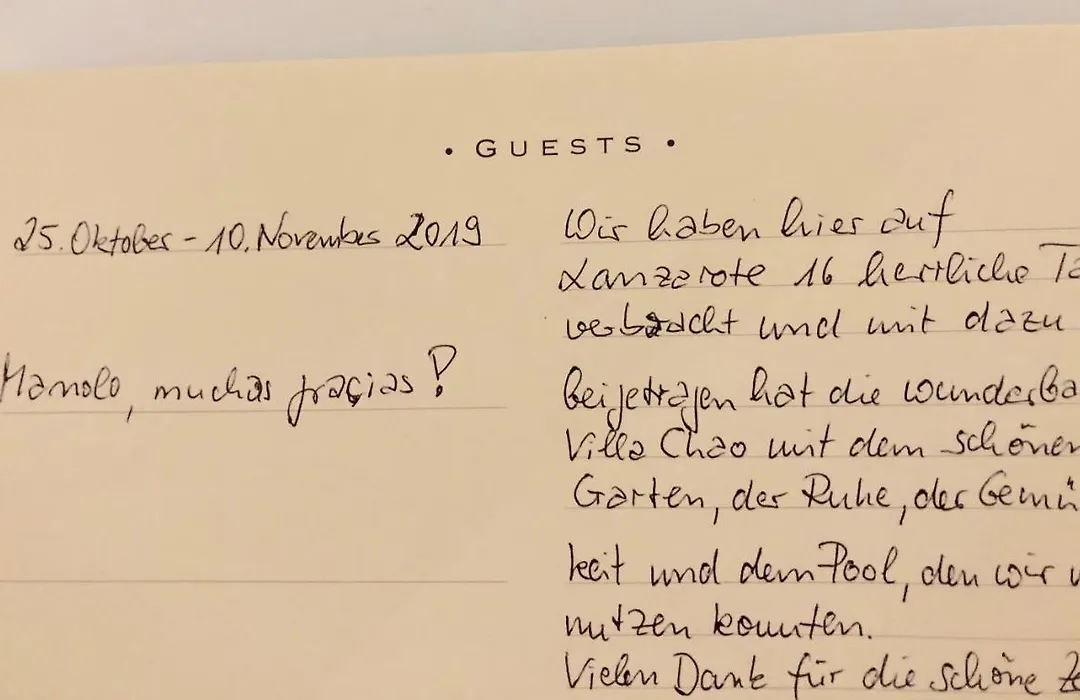 • GUESTS •
25. Oktober - 10. November 2019
Manolo, muchas gracias!
Wir haben hier auf
Lanzarote 16 herrliche Ta
verbracht und mit dazu
beigetragen hat die wunderba
Villa Chao mit dem schönen
Garten, der Ruhe, der Gemü
keit und dem Pool, den wir
nutzen konnten.
Vielen Dank für die schöne Ze